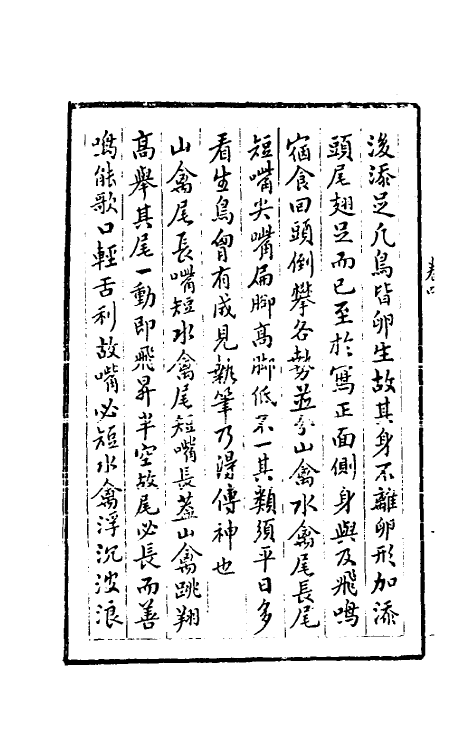 後添足凡鳥皆卵生故其身不離卵形加添
頭尾翅足而已至於寫正面側身與及飛鳴
宿食回頭倒攀各勢並分山禽水禽尾長尾
短嘴尖嘴扁腳高腳低不一其類須平日多
看生鳥胷有成見執筆乃得傳神也
山禽尾長嘴短水禽尾短嘴長蓋山禽跳翔
高舉其尾一動即飛昇半空故尾必長而善
鳴能歌口輕舌利故嘴必短水禽浮沉波浪
卷四